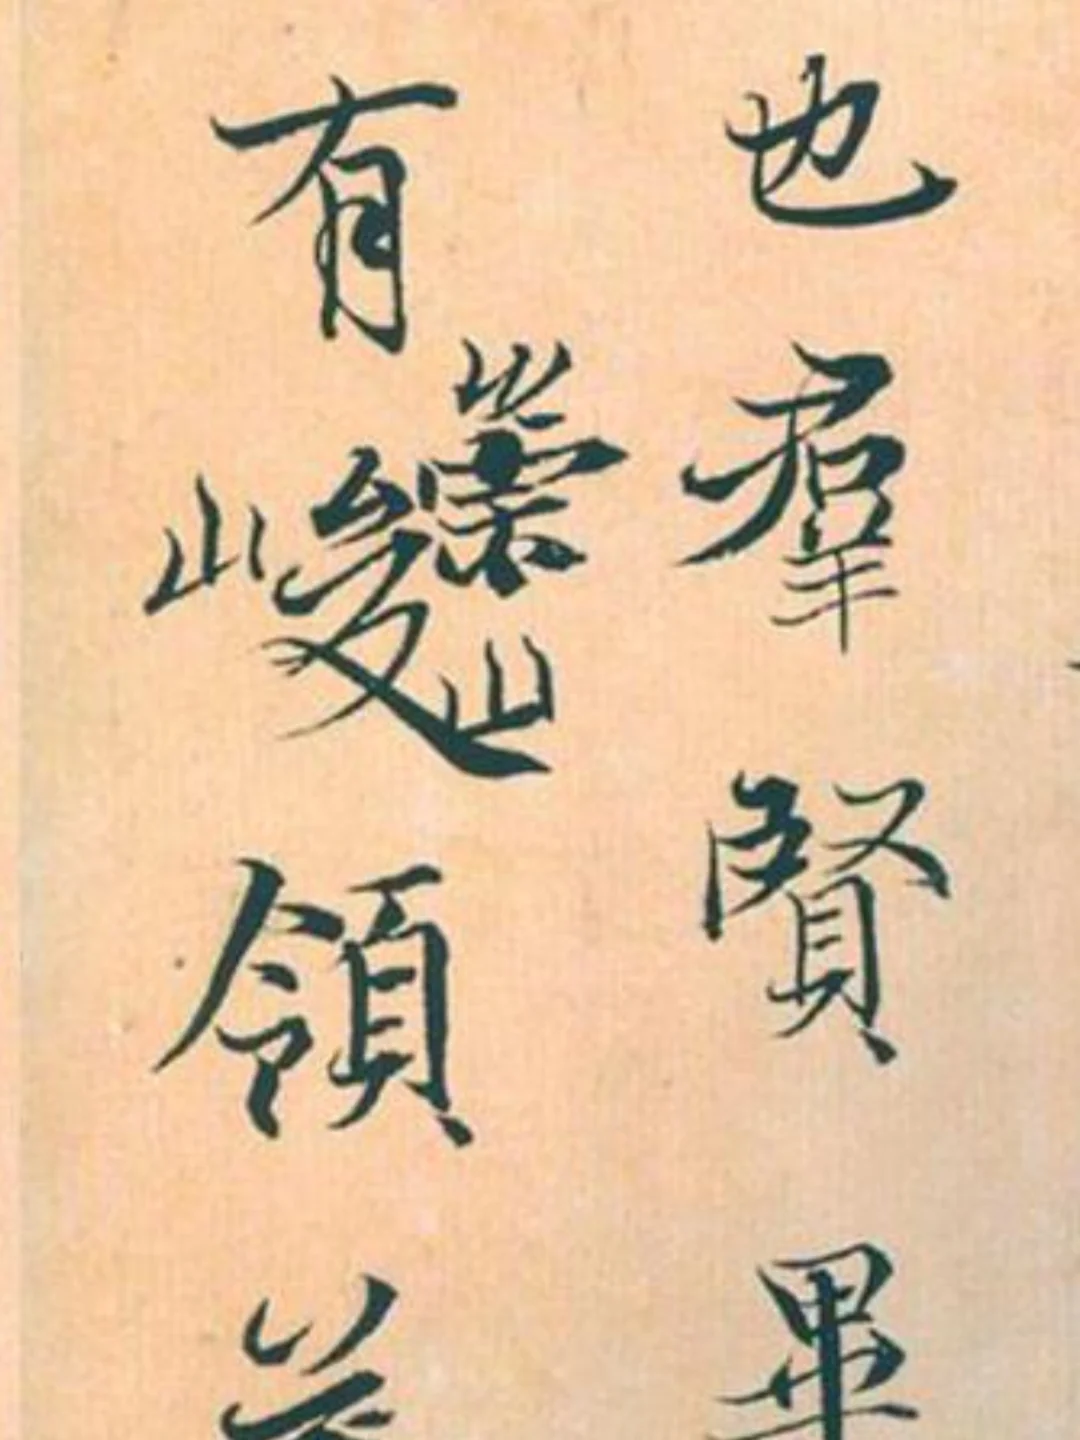 也羣賢畢
有崇山峻領